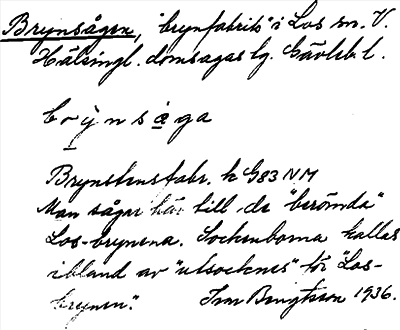 Brynsågen, "brynfabrik" i Los sn. V.
Hälsingl. domsagas lg. Gävleb. l.
brynsaga
Brynstensfabr. k G83 NM
Man sågar här till de "berömda"
Los-brynena. Sockenborna kallas
ibland av "utsocknes" för "Los-
brynen".
Ivar Bengtsson 1936.